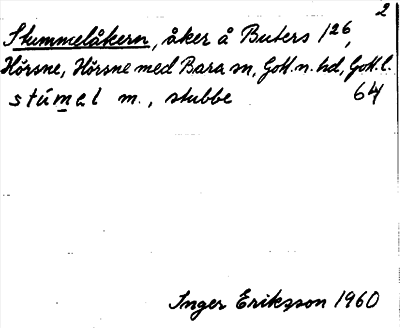 2
Stummelåkern, åker å Buters 1²⁶,
Hörsne, Hörsne med Bara sn, Gotl. n. hd, Gotl. l.
stúmel m., stubbe 64
Inger Eriksson 1960